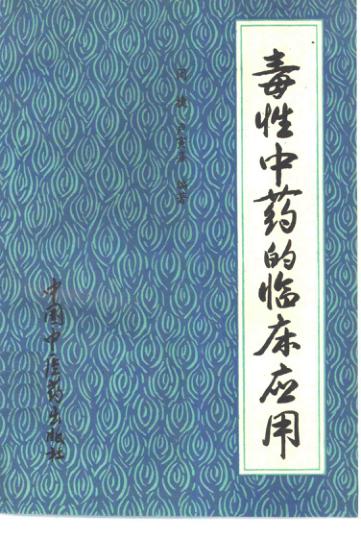 毒性中药的临床应用
编著
中国中医药出版社